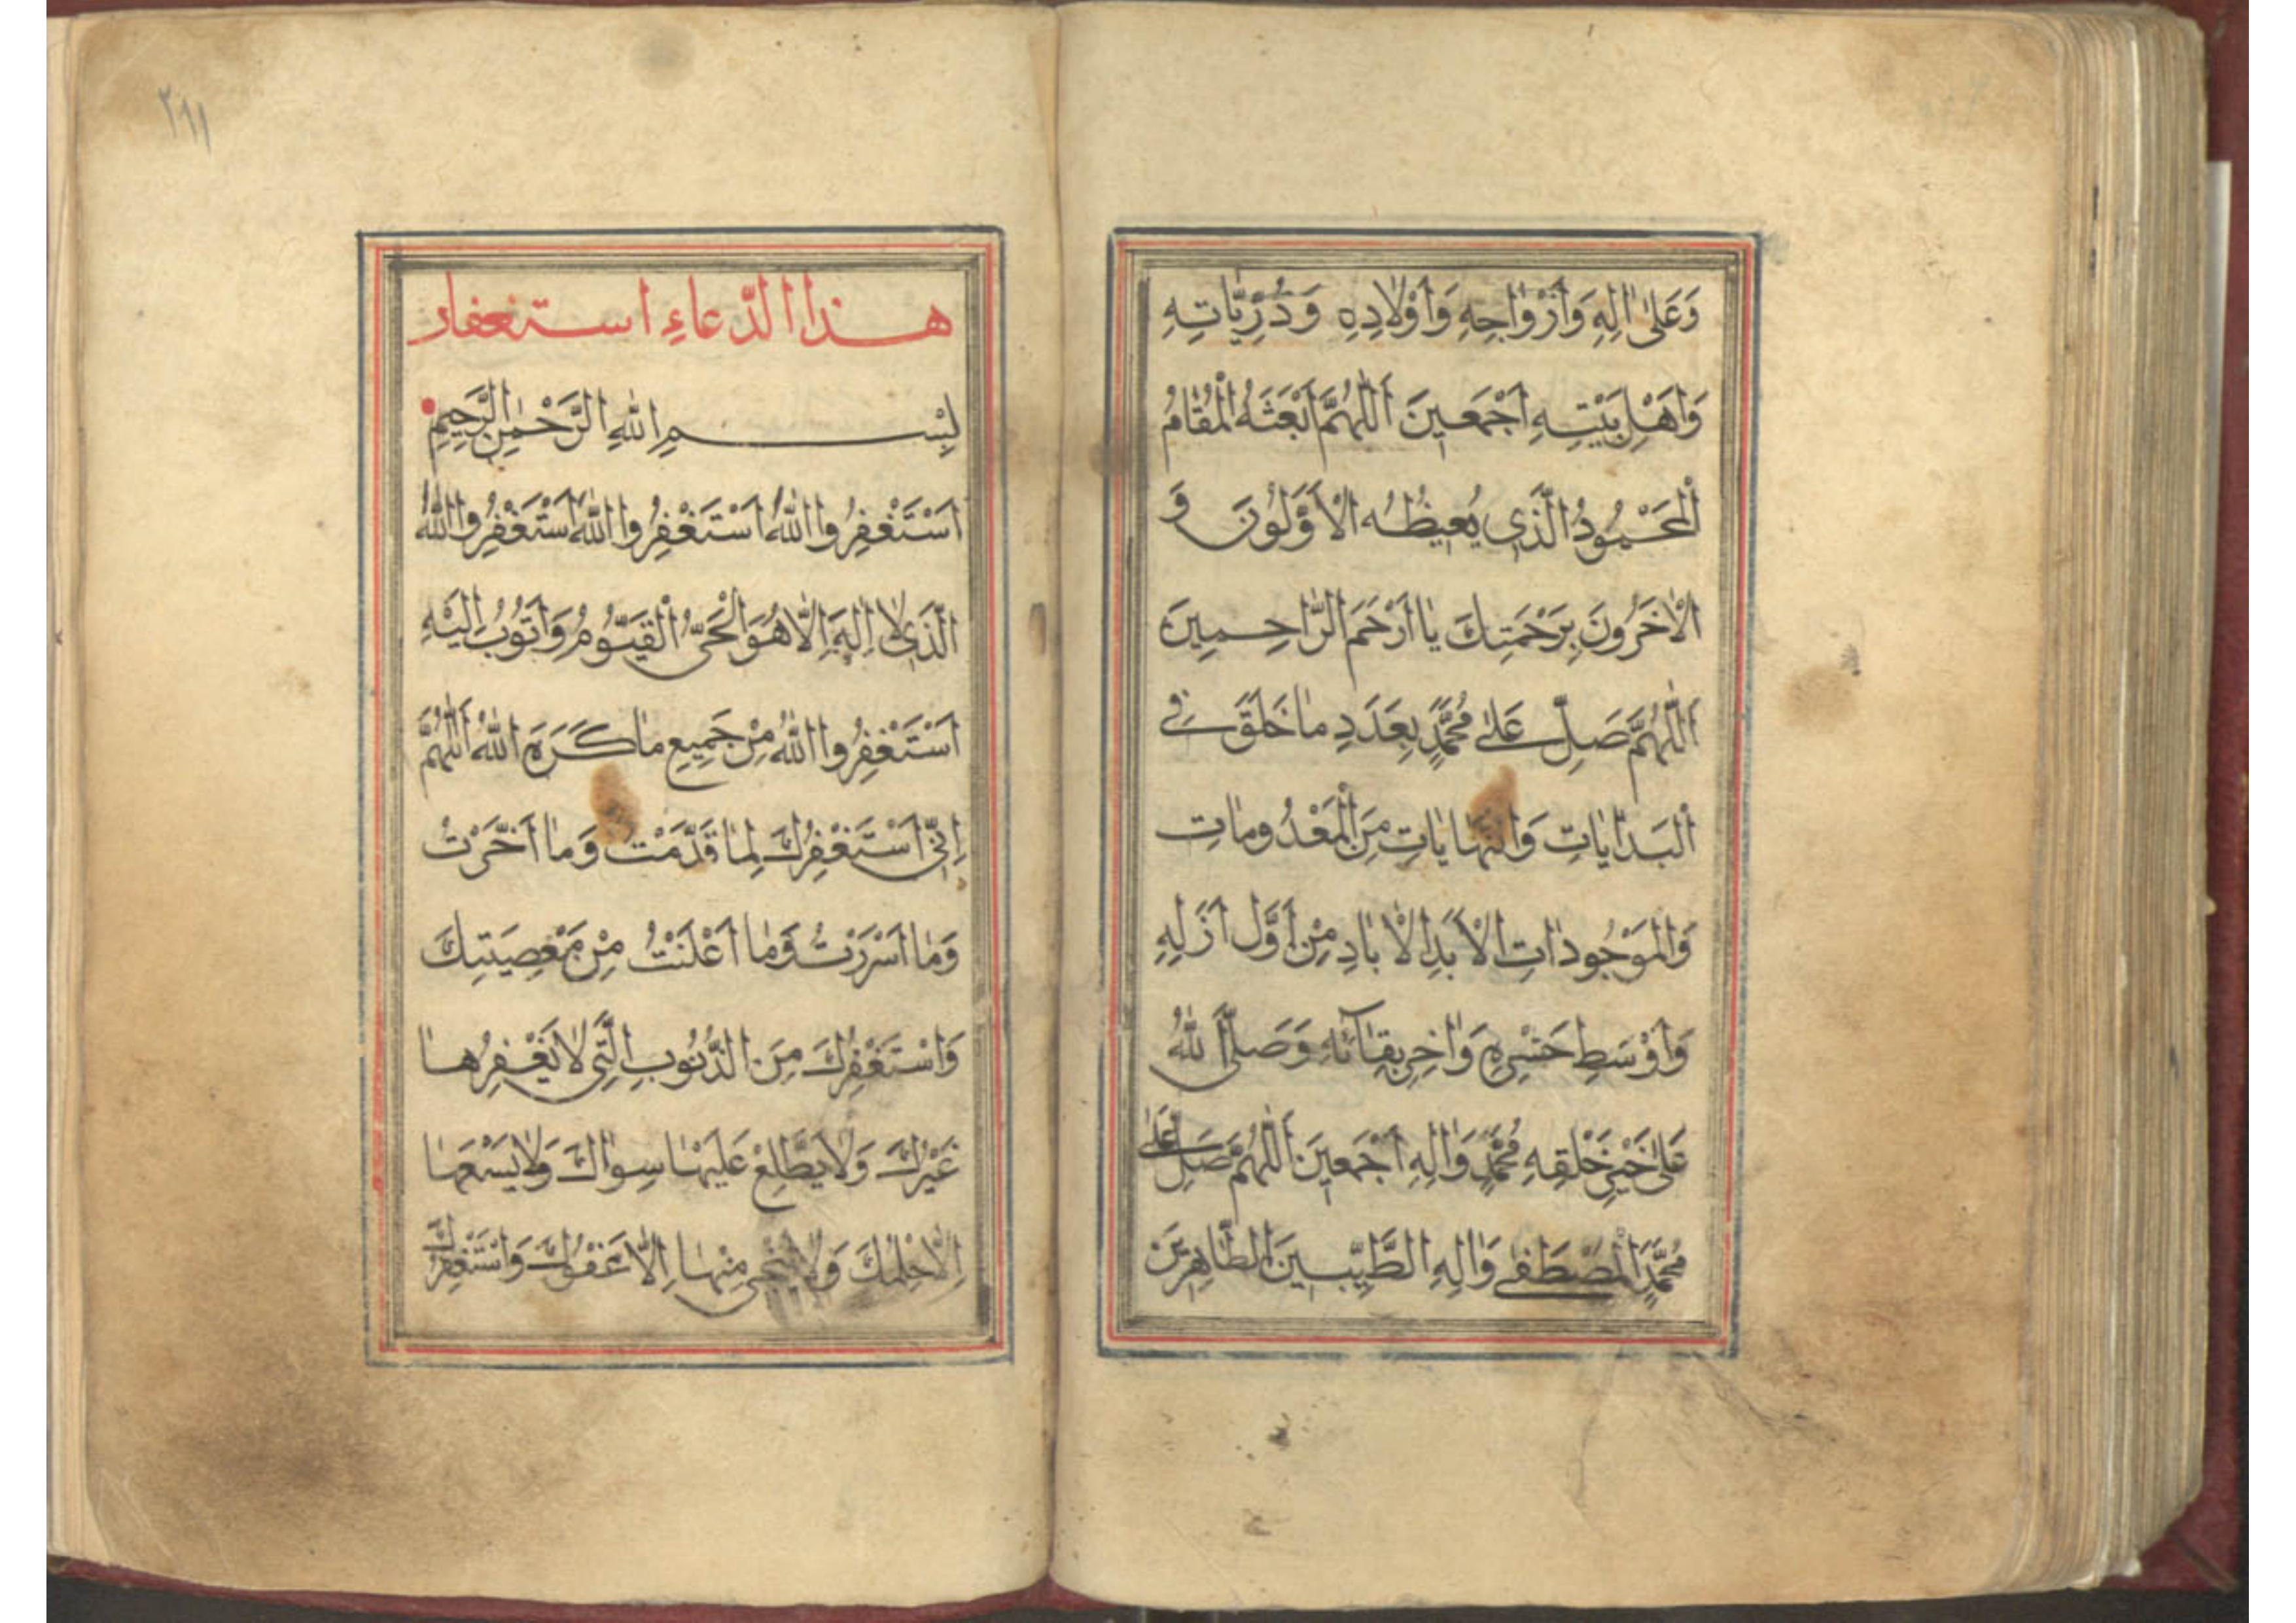 وَعَلىٰ اٰلِهِ وَاَزْوٰاجِهِ وَاَوْلاٰدِهِ وَذُرِّيّٰاتِهِ
وَاَهْلِ بَيْتِهِ اَجْمَعِينَ اَللّٰهُمَّ اَبْعَثَهُ الْمُقٰامُ
الْمَحْمُودُ الَّذِي يُعِيطُهُ الْاَوَّلُونَ وَ
الْاٰخَرُونَ بِرَحْمَتِكَ يٰا اَرْحَمَ الرّٰاحِمِينَ
اَللّٰهُمَّ صَلِّ عَلىٰ مُحَمَّدٍ بِعَدَدِ مٰا خَلَقَ فِي
الْبَدٰايٰاتِ وَالنَّهٰايٰاتِ مِنَ الْمَعْدُومٰاتِ
وَالْمَوْجُودٰاتِ الْاَبَدِ الْاٰبٰادِ مِنْ اَوَّلِ اَزَلِهِ
وَاَوْسَطِ حَشْرِهِ وَاٰخِرِ بِقٰآئِهِ وَصَلَّى اللّٰهُ
عَلىٰ خَيْرِ خَلْقِهِ مُحَمَّدٍ وَاٰلِهِ اَجْمَعِينَ اَللّٰهُمَّ صَلِّ عَلىٰ
مُحَمَّدٍ الْمُصْطَفىٰ وَاٰلِهِ الطَّيِّبِينَ الطّٰاهِرِينَ
٢٩١
هذا الدّعاءِ استغفار
بِسْمِ اللّٰهِ الرَّحْمٰنِ الرَّحِيمِ
اَسْتَغْفِرُوا اللّٰهَ اَسْتَغْفِرُوا اللّٰهَ اَسْتَغْفِرُوا اللّٰهَ
الَّذِي لاٰ اِلٰهَ اِلّٰا هُوَ الْحَيُّ الْقَيُّومُ وَاَتُوبُ اِلَيْهِ
اَسْتَغْفِرُوا اللّٰهَ مِنْ جَمِيعِ مٰا كَرَهَ اللّٰهُ اَللّٰهُمَّ
اِنِّي اَسْتَغْفِرُكَ لِمٰا قَدَّمَتْ وَمٰا اَخَّرَتْ
وَمٰا اَسْرَرْتُ وَمٰا اَعْلَنْتُ مِنْ مَعْصِيَتِكَ
وَاسْتَغْفِرُكَ مِنَ الذُّنُوبِ الَّتِي لاٰ يَغْفِرُهٰا
غَيْرُكَ وَلاٰ يَطَّلِعُ عَلَيْهٰا سِوٰاكَ وَلاٰ يَسَعُهٰا
اِلّٰا حِلْمُكَ وَلاٰ يُنْجِي مِنْهٰا اِلّٰا عَفْوُكَ وَاسْتَغْفِرُكَ